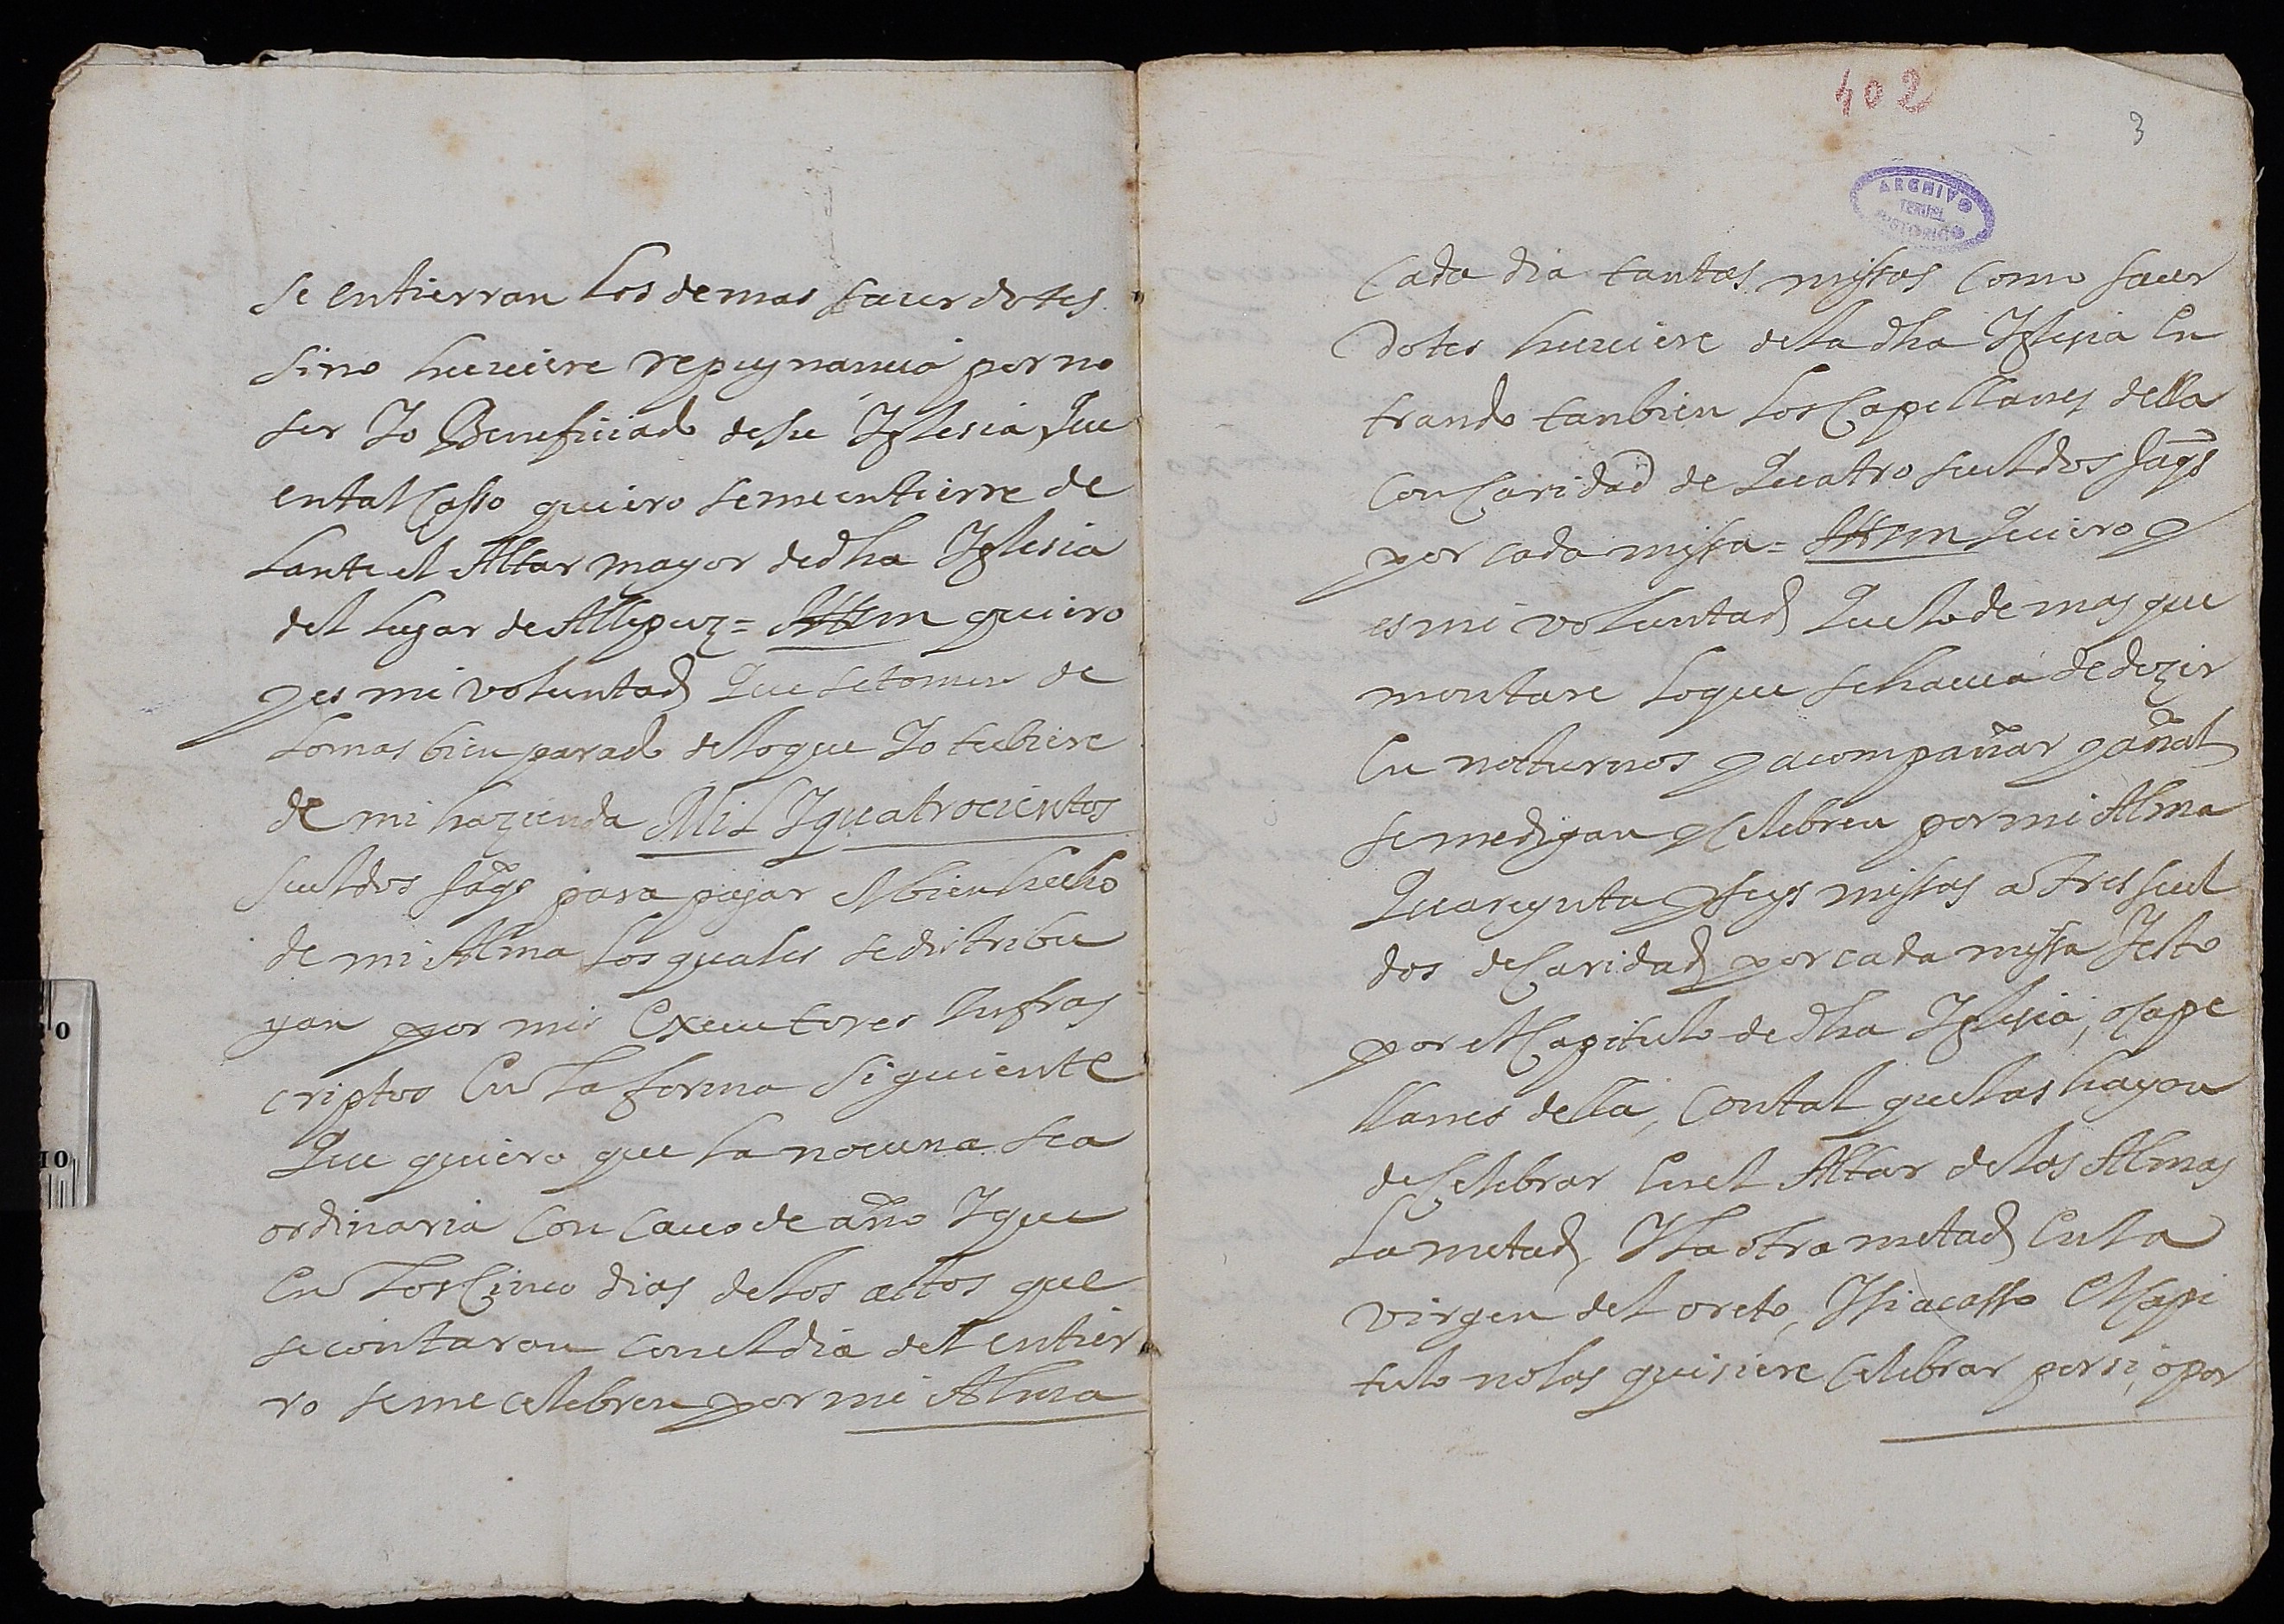 se entierran los demas sacerdotes
sino huuiere repugnancia por no
ser Yo Beneficiado de su Yglesia Que
ental Casso quiero sementierre de
lante el Altar mayor de dha Yglesia
del lugar de Allepuz = Ittem quiero
y es mi voluntad Que se tomen de
lo mas bien parado de lo que Yo tubiere
de mi hazienda Mil Y quatrocientos
sueldos Jaqs para pagar el bien hecho
de mi Alma los quales se distribu
yan por mis Executores Infras
criptos En la forma Siguiente
Que quiero que la nouena sea
ordinaria Con Cauo de año Y que
En los Cinco dias de los actos que
se contaran con el dia del entier
ro se me celebren por mi Alma
402
3
ARCHIVO
TERUEL
HISTORICO
Cada dia tantas missas Como sacer
dotes huuiere de la dha Yglesia En
trando tanbien los Capellanes della
Con Caridad de Quatro sueldos Jaqs
por cada missa = Ittem Quiero y
es mi voluntad Que lo de mas que
montare lo que se haura de dezir
En nocturnos y acompañar y añal
se me digan y Celebren por mi Alma
Quarenta y seys missas a tres suel
dos de Caridad por cada missa Y esto
por el Capitulo de dha Yglesia, o Cape
llanes della, Con tal que las hayan
de Celebrar En el Altar de las Almas
La metad, Y la otra metad En la
virgen del oreto, Y si acasso El Capi
tulo no las quisiere Celebrar por si, o por